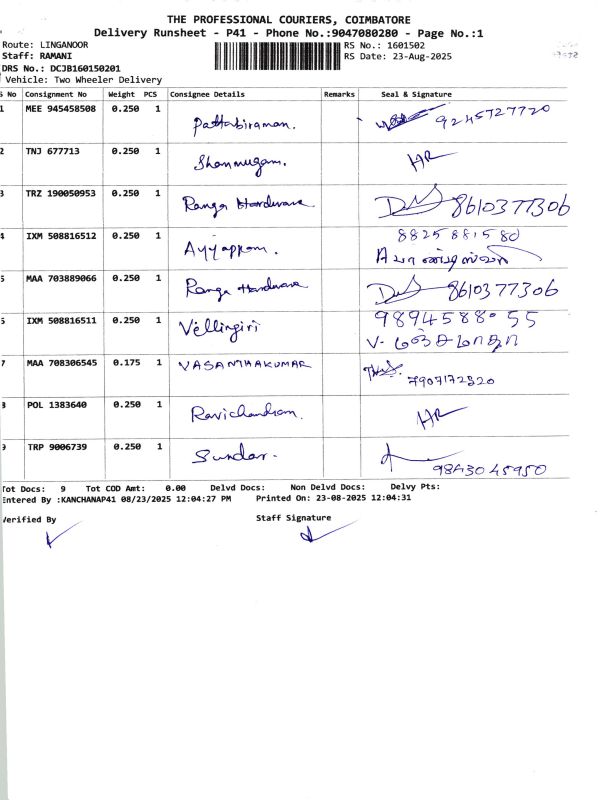 THE PROFESSIONAL COURIERS, COIMBATORE
Delivery Runsheet - P41 - Phone No.:9047080280 - Page No.:1
Route: LINGANOOR
RS No.: 1601502
Staff: RAMANI
RS Date: 23-Aug-2025
DRS No.: DCJB160150201
Vehicle: Two Wheeler Delivery
S No Consignment No Weight PCS Consignee Details Remarks Seal & Signature
1 MEE 945458508 0.250 1 Pattabiraman. 9245727720
2 TNJ 677713 0.250 1 Shanmugam. HR
3 TRZ 190050953 0.250 1 Ranga Hardware 8610377306
4 IXM 508816512 0.250 1 Ayyappan. 8825881580
5 MAA 703889066 0.250 1 Ranga Hardware 8610377306
6 IXM 508816511 0.250 1 Vellingiri 98945880 55
V. மஞ்சுமாதா
7 MAA 708306545 0.175 1 VASANTHAKUMAR
7907172520
8 POL 1383640 0.250 1 Ravichandran. HR
9 TRP 9006739 0.250 1 Sundar.
9843045950
Tot Docs: 9 Tot COD Amt: 0.00 Delvd Docs: Non Delvd Docs: Delvy Pts:
Entered By :KANCHANAP41 08/23/2025 12:04:27 PM Printed On: 23-08-2025 12:04:31
Verified By Staff Signature